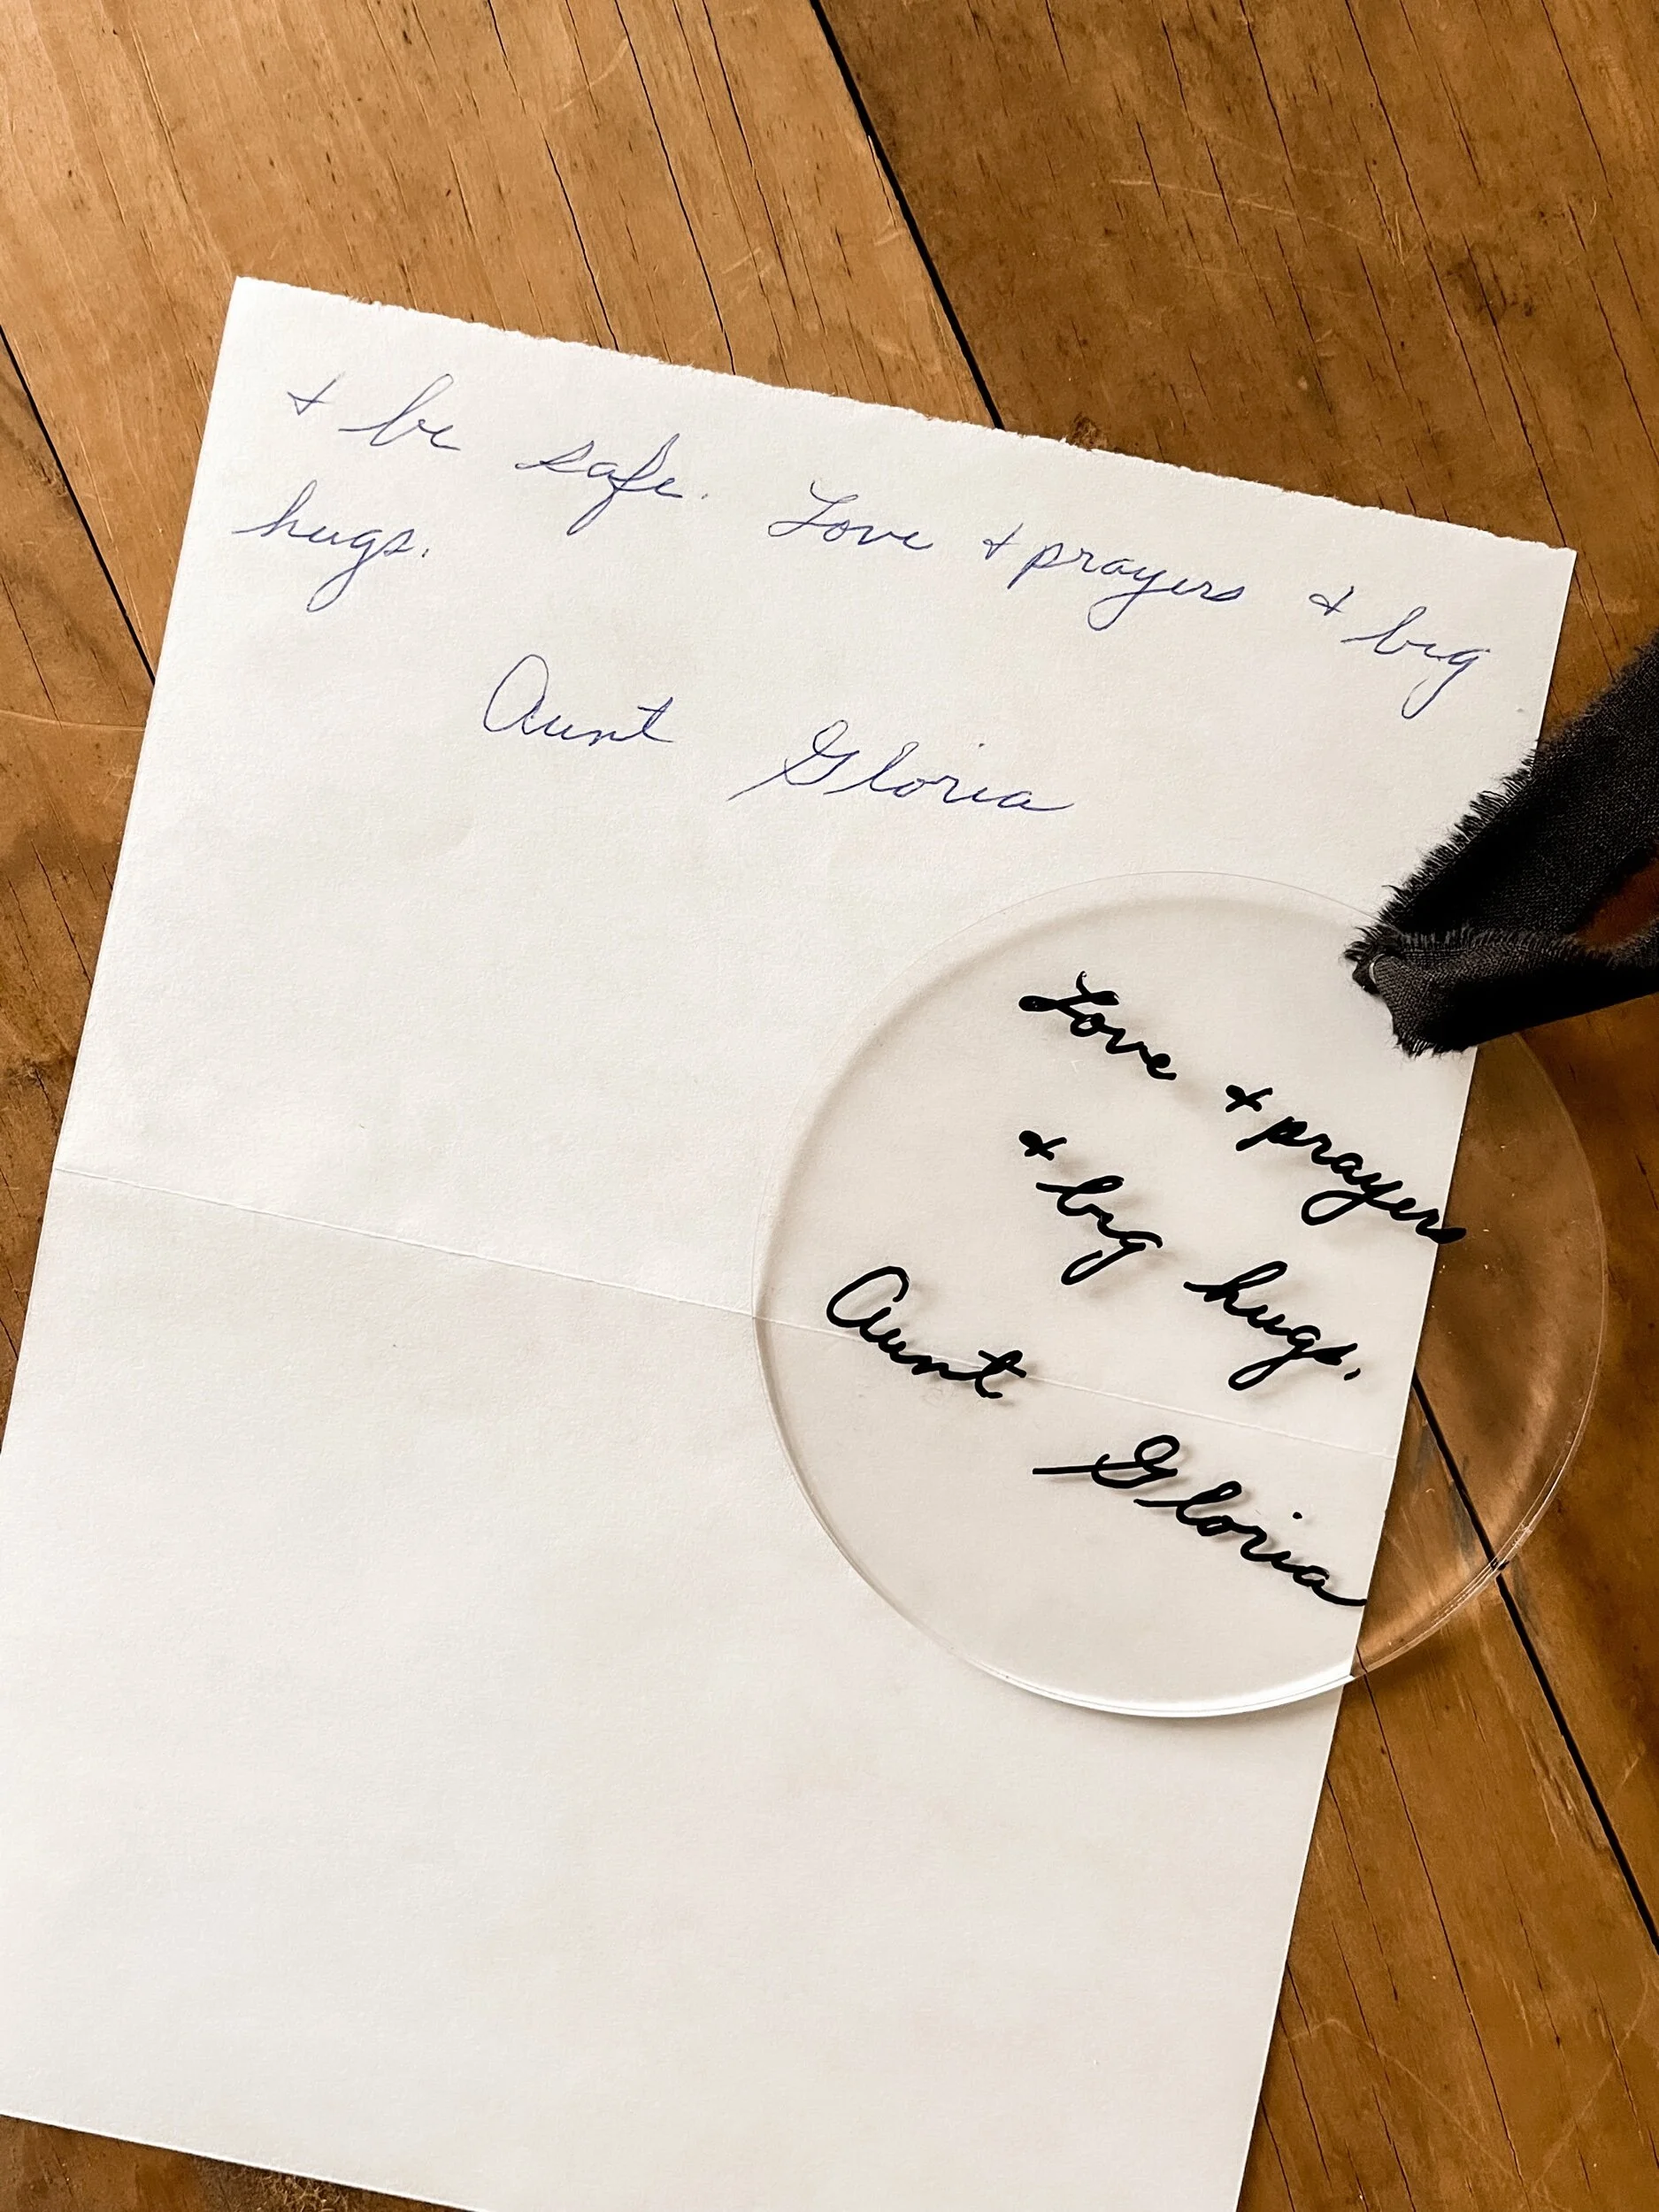 + be safe. Love + prayers + big
hugs.
Aunt Gloria
Love + prayers
+ big hugs.
Aunt Gloria